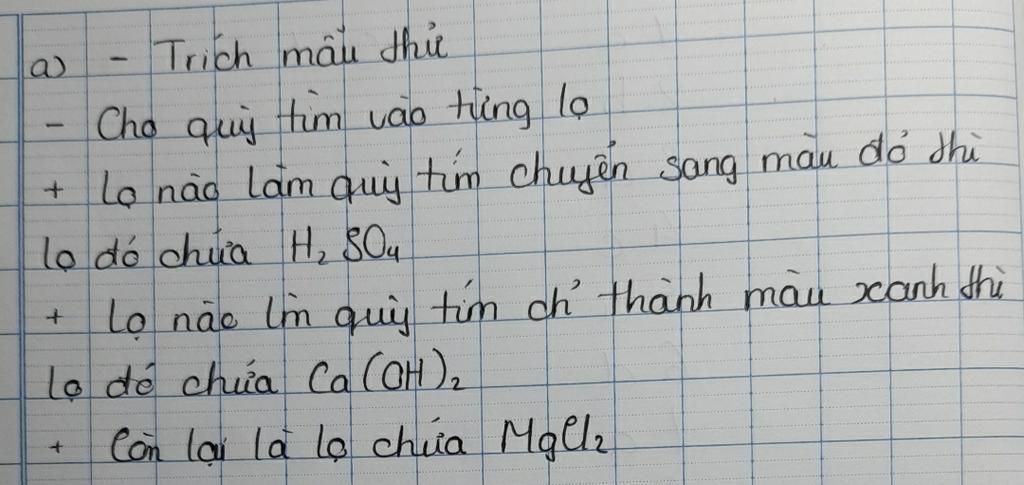 a) - Trích mẫu thử
- Cho quỳ tím vào từng lọ
+ Lọ nào làm quỳ tím chuyển sang màu đỏ thì
lọ đó chứa H₂SO₄
+ Lọ nào lm quỳ tím ch' thành màu xanh thì
lọ đó chứa Ca(OH)₂
+ Còn lại là lọ chứa MgCl₂